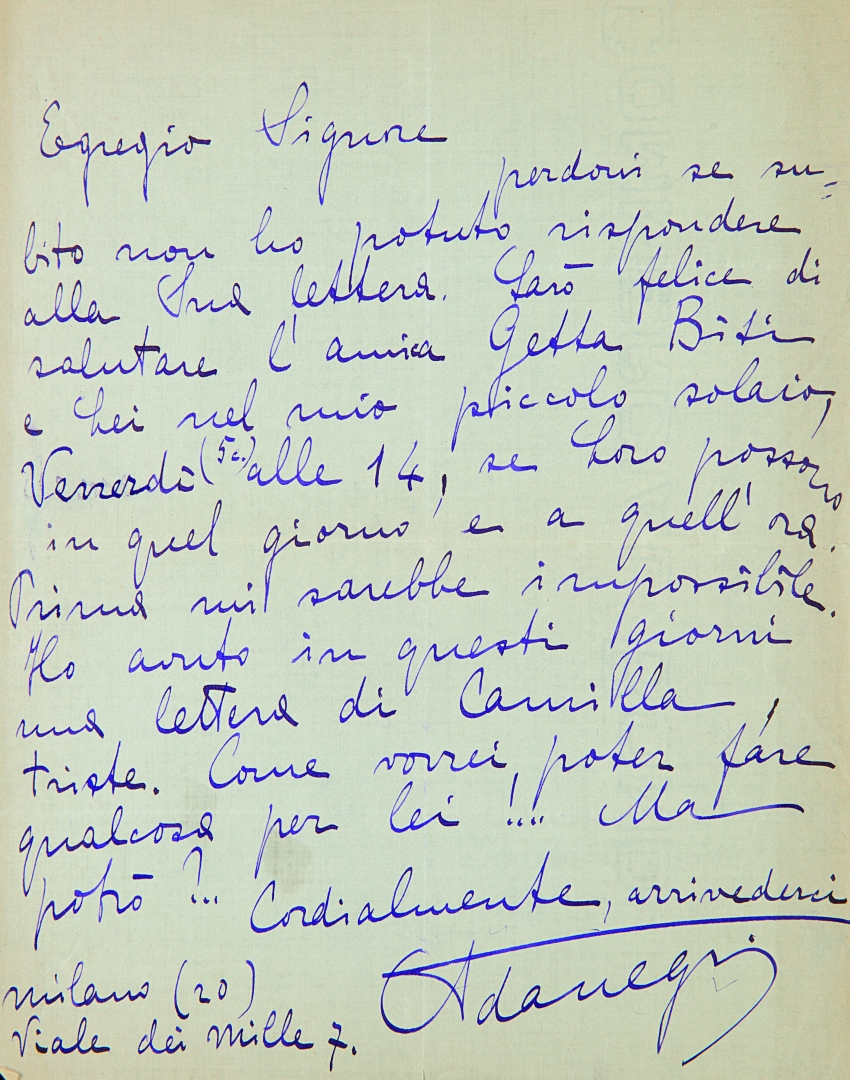 Egregio Signore
perdoni se su=
bito non ho potuto rispondere
alla Sua lettera. Sarò felice di
salutare l'amica Getta Biti
e Lei nel mio piccolo solaio,
Venerdì (5c.) alle 14, se Loro possono
in quel giorno e a quell'ora.
Prima mi sarebbe impossibile.
Ho avuto in questi giorni
una lettera di Camilla,
triste. Come vorrei, poter fare
qualcosa per lei !... Ma
potrò ?... Cordialmente, arrivederci
Adanegri
Milano (20)
Viale dei Mille 7.